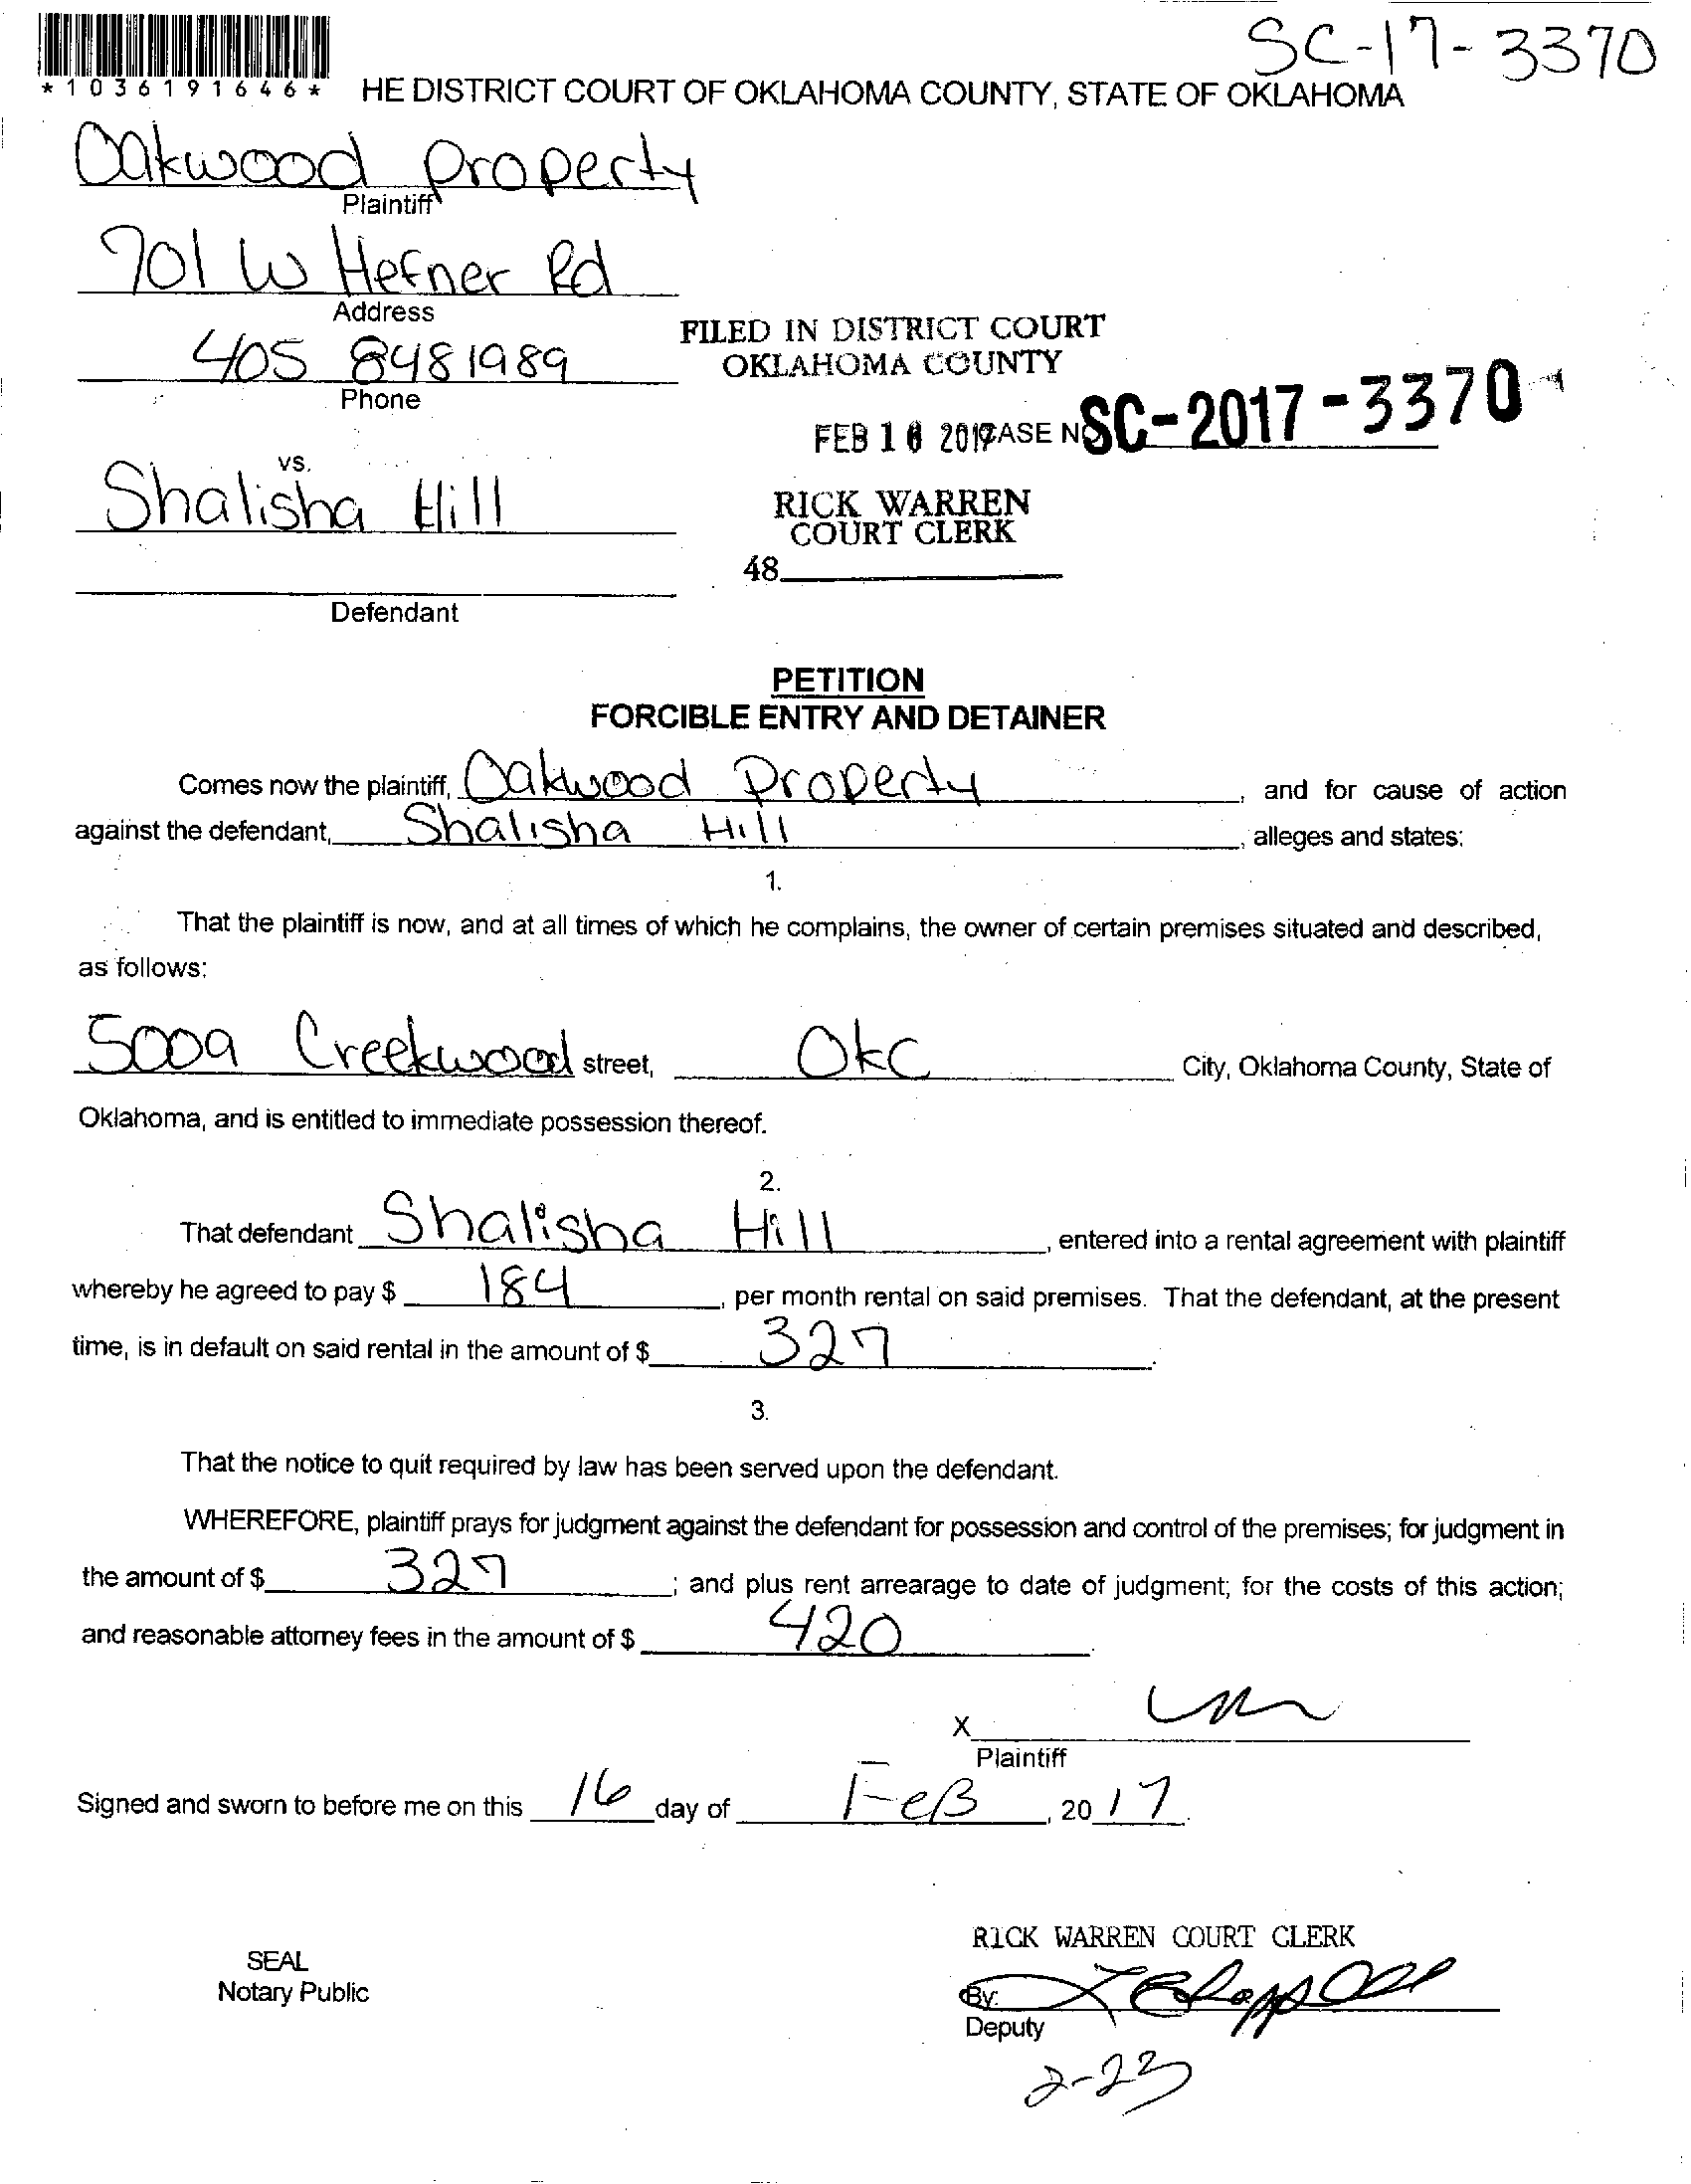 SC-17-3370
*1036191646*
HE DISTRICT COURT OF OKLAHOMA COUNTY, STATE OF OKLAHOMA
Oakwood Property
Plaintiff
701 W Hefner Rd
Address
405 8481989
Phone
FILED IN DISTRICT COURT
OKLAHOMA COUNTY
FEB 16 2017 CASE NO SC-2017-3370
vs.
Shalisha Hill
RICK WARREN
COURT CLERK
48
Defendant
PETITION
FORCIBLE ENTRY AND DETAINER
Comes now the plaintiff, Oakwood Property, and for cause of action
against the defendant, Shalisha Hill, alleges and states:
1.
That the plaintiff is now, and at all times of which he complains, the owner of certain premises situated and described,
as follows:
5009 Creekwood street, OKC City, Oklahoma County, State of
Oklahoma, and is entitled to immediate possession thereof.
2.
That defendant Shalisha Hill, entered into a rental agreement with plaintiff
whereby he agreed to pay $ 184, per month rental on said premises. That the defendant, at the present
time, is in default on said rental in the amount of $ 327.
3.
That the notice to quit required by law has been served upon the defendant.
WHEREFORE, plaintiff prays for judgment against the defendant for possession and control of the premises; for judgment in
the amount of $ 327; and plus rent arrearage to date of judgment; for the costs of this action;
and reasonable attorney fees in the amount of $ 420.
X
Plaintiff
Signed and sworn to before me on this 16 day of FeB, 2017.
RICK WARREN COURT CLERK
SEAL
Notary Public
By:
Deputy
2-23